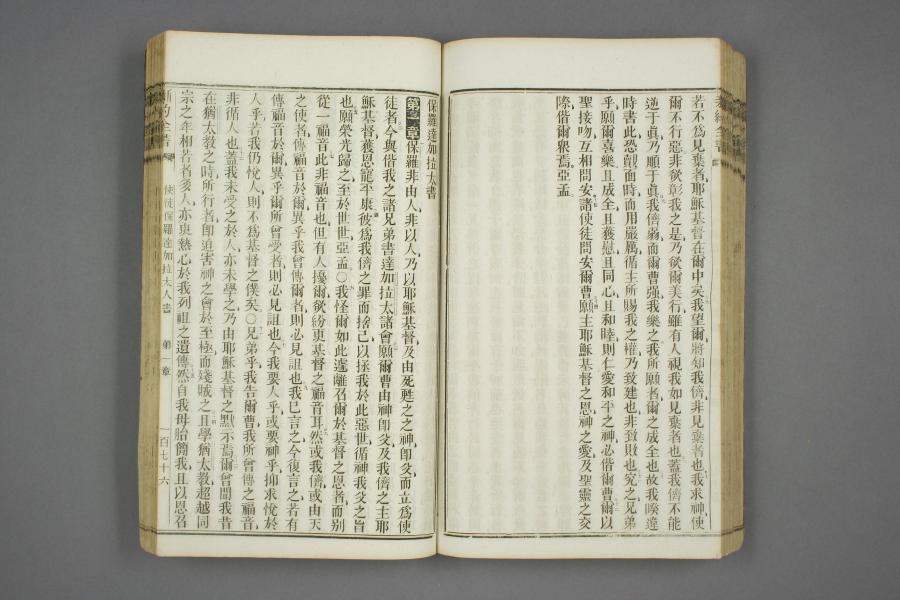 若不爲見棄者耶穌基督在爾中矣我望爾將知我儕非見棄者也我求神使
爾不行惡非欲彰我之是乃欲爾美行雖有人視我如見棄者也蓋我儕不能
逆于眞乃順于眞我儕弱而爾曹強我樂之我所願者爾之成全也故我暌違
時書此恐覿面時而用嚴厲循主所賜我之權乃致建也非致敗也究之兄弟
乎願爾喜樂且成全且獲慰且同心且和睦則仁愛和平之神必偕爾曹爾以
聖接吻互相問安諸使徒問安爾曹願主耶穌基督之恩神之愛及聖靈之交
際偕爾衆焉亞孟
保羅達加拉太書
第一章保羅非由人非以人乃以耶穌基督及由死甦之之神卽父而立爲使
徒者今與偕我之諸兄弟書達加拉太諸會願爾曹由神卽父及我儕之主耶
穌基督獲恩寵平康彼爲我儕之罪而捨己以拯我於此惡世循神我父之旨
也願榮光歸之至於世世亞孟〇我怪爾如此遽離召爾於基督之恩者而别
從一福音此非福音也但有人擾爾欲紛更基督之福音耳然或我儕或由天
之使者傳福音於爾異乎我曾傳爾者則必見詛也我已言之今復言之若有
傳福音於爾異乎爾所曾受者則必見詛也今我要人乎或要神乎抑求悅於
人乎若我仍悅人則不爲基督之僕矣〇兄弟乎我告爾曹我所曾傳之福音
非循人也蓋我未受之於人亦未學之乃由耶穌基督之默示焉爾曾聞我昔
在猶太教之時所行者卽迫害神之會於至極而殘賊之且學猶太教超越同
宗之年相若者多人亦更熱心於我列祖之遺傳然自我母胎簡我且以恩召
新約全書
使徒保羅達加拉太人書
第一章
一百七十六